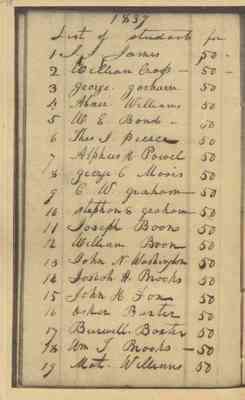 1837
List of students for
1 J. J. James 50 -
2 William Crop - 50 -
3 george. gorham 50
4 Abner Williams 50
5 W E Bond - 50
6 Thos J. pierce 50
7 Alpheus K Powel 50
8 george C Moses 50
9 C. W. graham - 50
10 stephen S graham - 50
11 Joseph Boon 50
12 William Boon 50
13 John N. Washington 50
14 Josiah H. Brooks 50
15 John K Fon 50
16 Baxter 50
17 Burwell. Baxter 50
18 Wm J. Brooks - 50
19 Mat. Williams 50